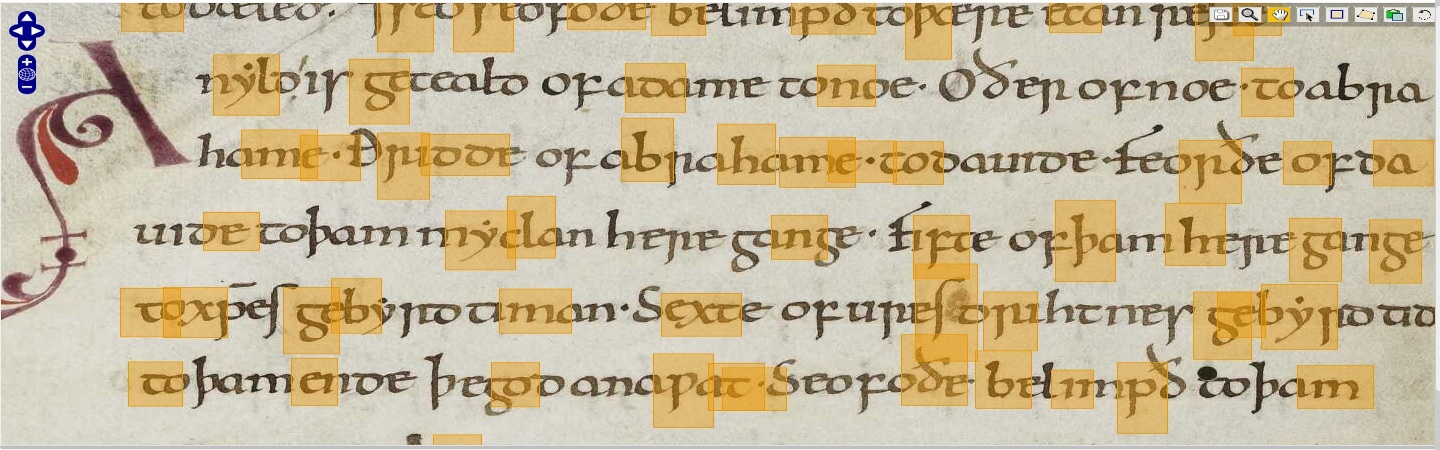 seofoðe belimpð to ecan
An yld ís geteald of adame to noe· Oðer of noe· to abra
hame· Ðridde of abrahame· to dauide· Feorðe of da
uide to þam myclan here gange· Fifte of þam here gange
to xp̄es gebyrd timan· Sexte of ures drihtnes gebyrd tid
to þam ende þe god ana ƿat· Seofoðe belimpð to þam